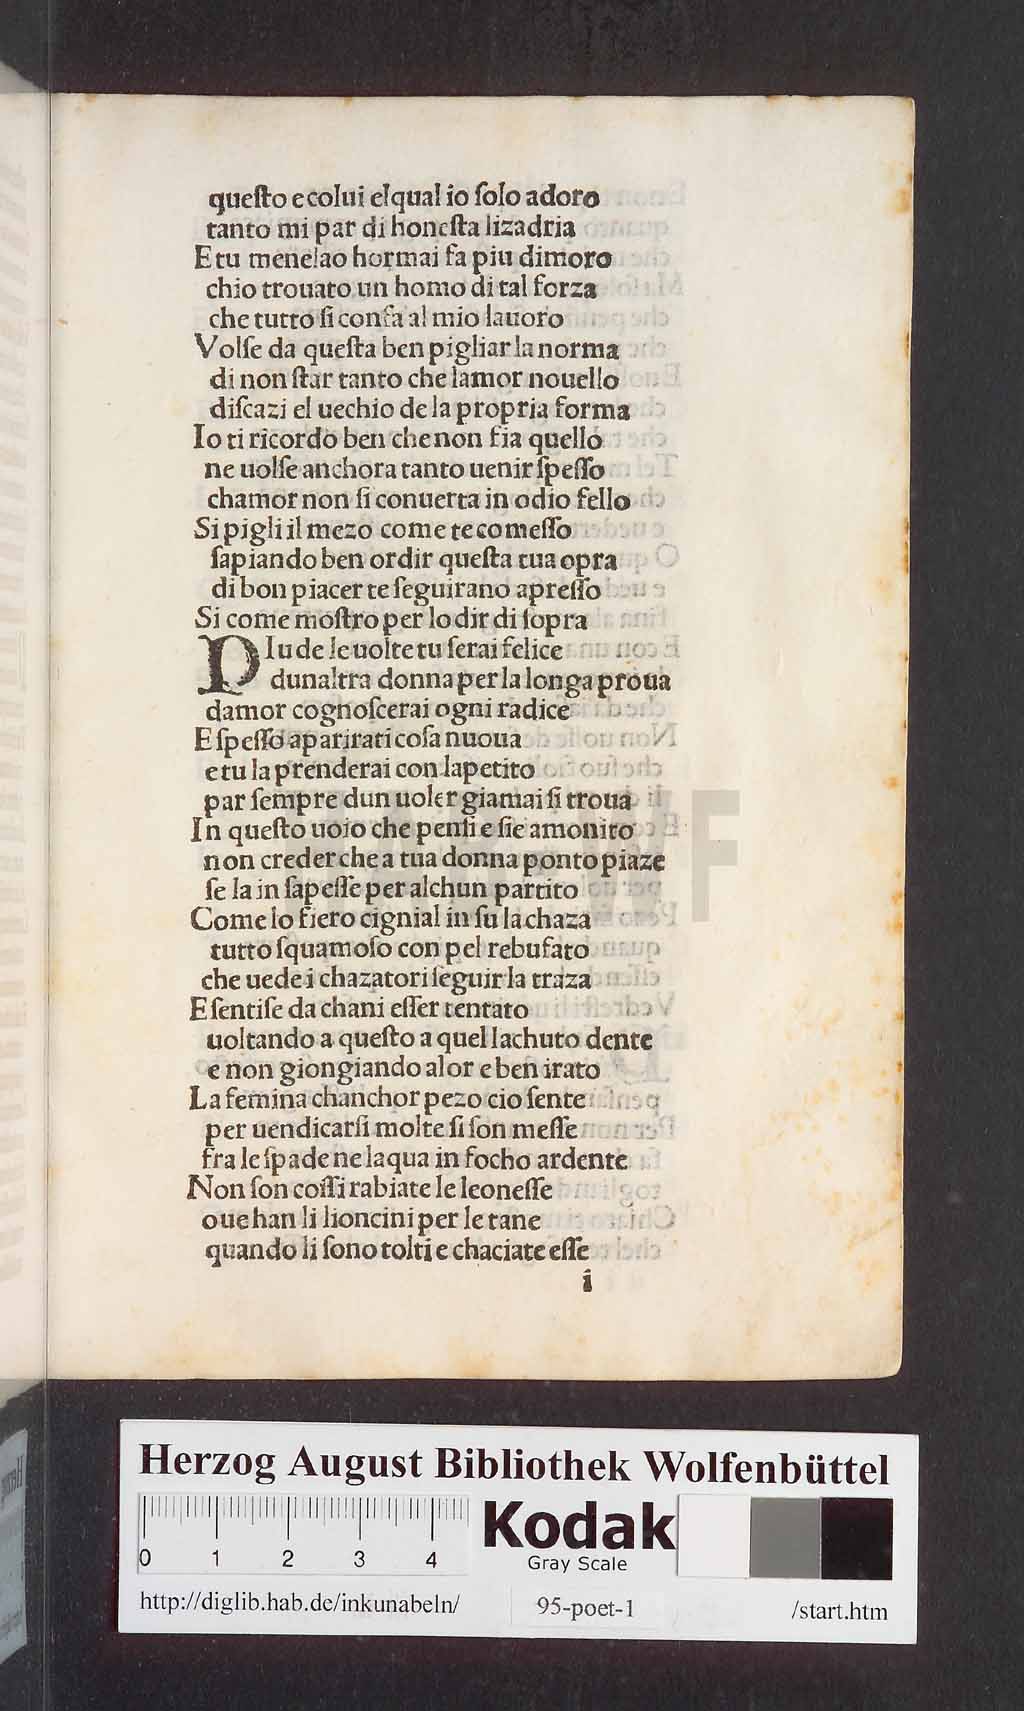 queſto e colui elqual io ſolo adoro
tanto mi par di honeſta lizadria
E tu menelao hormai fa piu dimoro
chio trouato un homo di tal forza
che tutto ſi confa al mio lauoro
Volſe da queſta ben pigliar la norma
di non ſtar tanto che lamor nouello
diſcazi el uechio de la propria forma
Io ti ricordo ben che non ſia quello
ne uolſe anchora tanto uenir ſpeſſo
chamor non ſi conuerta in odio fello
Si pigli il mezo come teco meſſo
ſapiando ben ordir queſta tua opra
di bon piacer te ſeguirano apreſſo
Si come moſtro per lo dir di ſopra
PIu de le uolte tu ſerai felice
dunaltra donna per la longa proua
damor cognoſcerai ogni radice
E ſpeſſo aparirati coſa nuoua
e tu la prenderai con lapetito
par ſempre dun uoler giamai ſi troua
In queſto uoio che penſi e ſie amonito
non creder che a tua donna ponto piaze
ſe la in ſapeſſe per alchun partito
Come lo fiero cignial in ſu la chaza
tutto ſquamoſo con pel rebufato
che uede i chazatori ſeguir la traza
E ſentiſe da chani eſſer tentato
uoltando a queſto a quel lachuto dente
e non giongiando alor e ben irato
La femina chanchor pezo cio ſente
per uendicarſi molte ſi ſon meſſe
fra le ſpade ne laqua in focho ardente
Non ſon coſſi rabiate le leoneſſe
oue han li lioncini per le tane
quando li ſono tolti e chaciate eſſe
i
HAB-WF
Herzog August Bibliothek Wolfenbüttel
0 1 2 3 4
Kodak
Gray Scale
http://diglib.hab.de/inkunabeln/ 95-poet-1 /start.htm